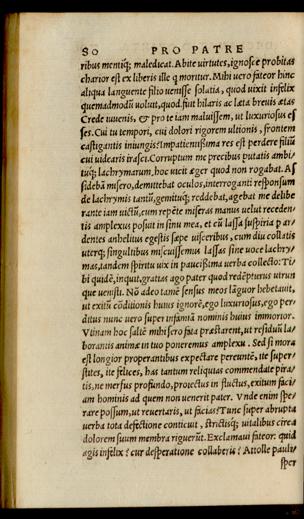 80 PRO PATRE
ribus mentiq; maledicat. Abite virtutes, ignosce probitas
charior est ex liberis ille q moritur. Mihi vero fateor hinc
aliqua languente filio venisse solatia, quod vixit infelix
quemadmodũ voluit, quod fuit hilaris ac læta brevis ætas
Crede iuvenis, & pro te iam maluissem, ut luxuriosus es
ses. Cui tu tempori, cui dolori rigorem ultionis, frontem
castigantis iniungis? Impatientißima res est perdere filiũ
cui videaris irasci. Corruptum me precibus putatis ambi-
tuq; lachrymarum, hoc vicit æger quod non rogabat. As
sidebã misero, demittebat oculos, interroganti responsum
de lachrymis tantũ, gemituq; reddebat, agebat me delibe
rante iam victũ, cum repẽte miseras manus velut receden-
tis amplexus posuit in sinu mea, et cũ lassa suspiria par
dentes anhelitus egestis sæpe visceribus, cum diu collatis
uterq; singultibus miscuissemus lassas sine voce lachry-
mas, tandem spiritu vix in paucißima verba collecto: Ti-
bi quidẽ, inquit, gratias ago pater quod redẽpturus utrun
que venisti. Nõ adeo tamẽ sensus meos lãguor hebetauit,
ut exitũ cõditionis huius ignorẽ, ego luxuriosus, ego per-
ditus nunc vero super infamiã nominis huius immorior.
Vtinam hoc saltẽ mihi sero fata præstarent, ut residuũ la-
borantis animæ in tuo poneremus amplexu. Sed si mora
est longior properantibus expectare pereuntẽ, ite super-
stites, ite felices, has tantum reliquias commendate pira-
tis, ne mersus profundo, proiectus in fluctus, exitum faci-
am hominis ad quem non venerit pater. Vnde enim spe-
rare possum, ut revertaris, ut facias? Tunc super abrupta
verba tota defectione conticuit, strictisq; vitalibus circa
dolorem suum membra riguerũt. Exclamaui fateor: quid
agis infelix? cur desperatione collaberis? Attolle pauli-
sper